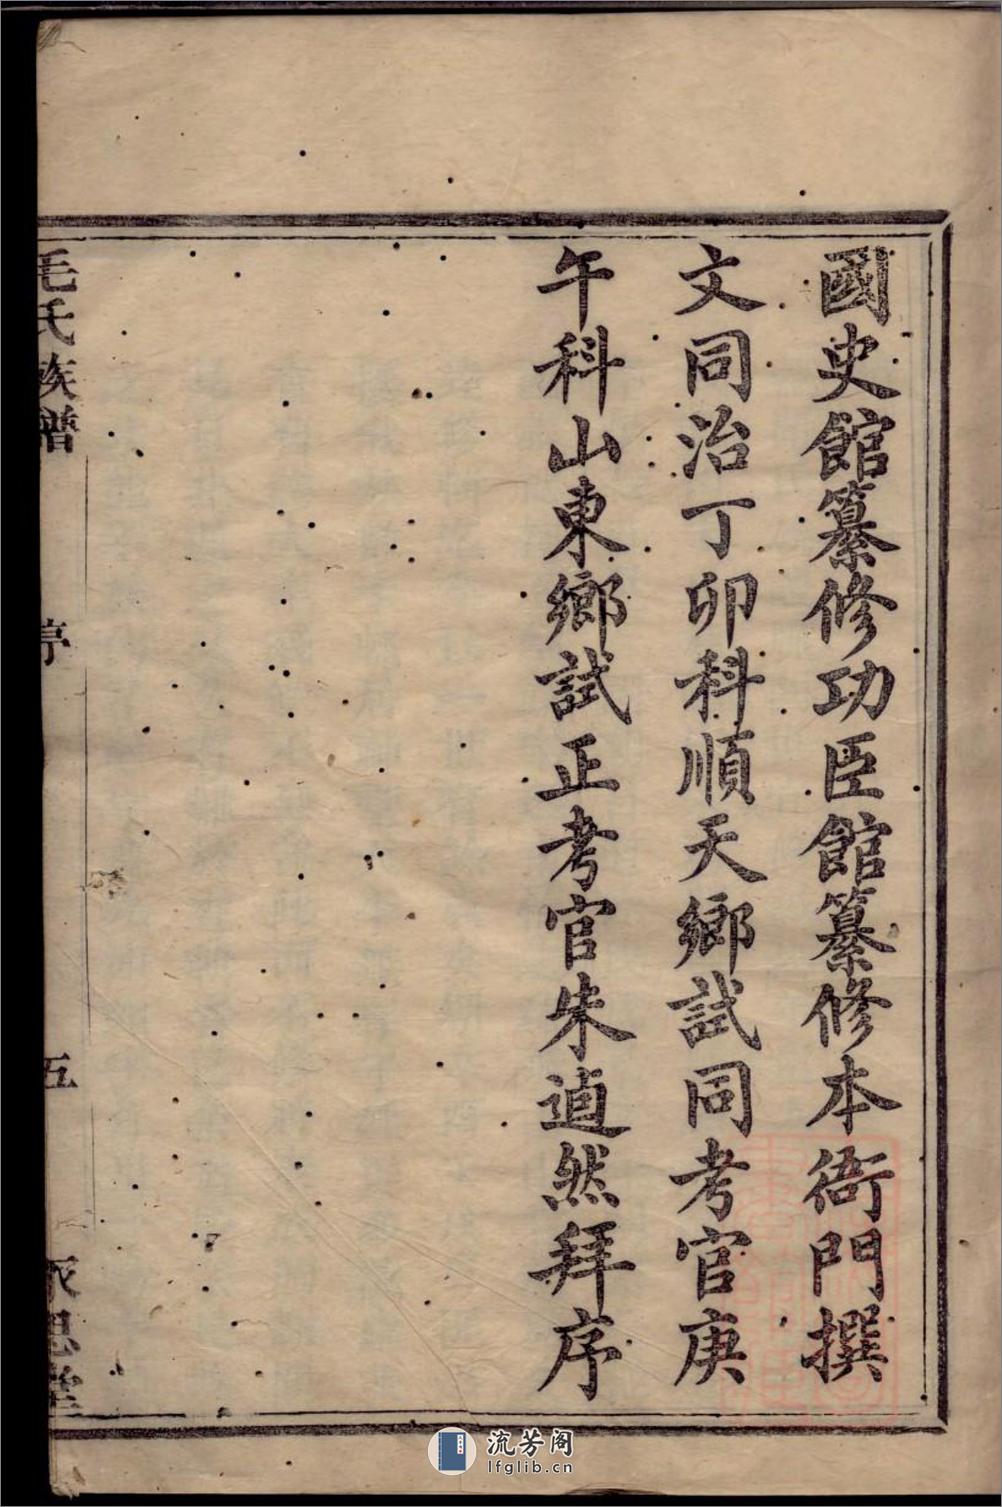 國史館纂修功臣館纂修本衙門撰
文同治丁卯科順天鄉試同考官庚
午科山東鄉試正考官朱逌然拜序
毛氏族譜
序
五
永思堂
流芳阁
lfglib.cn